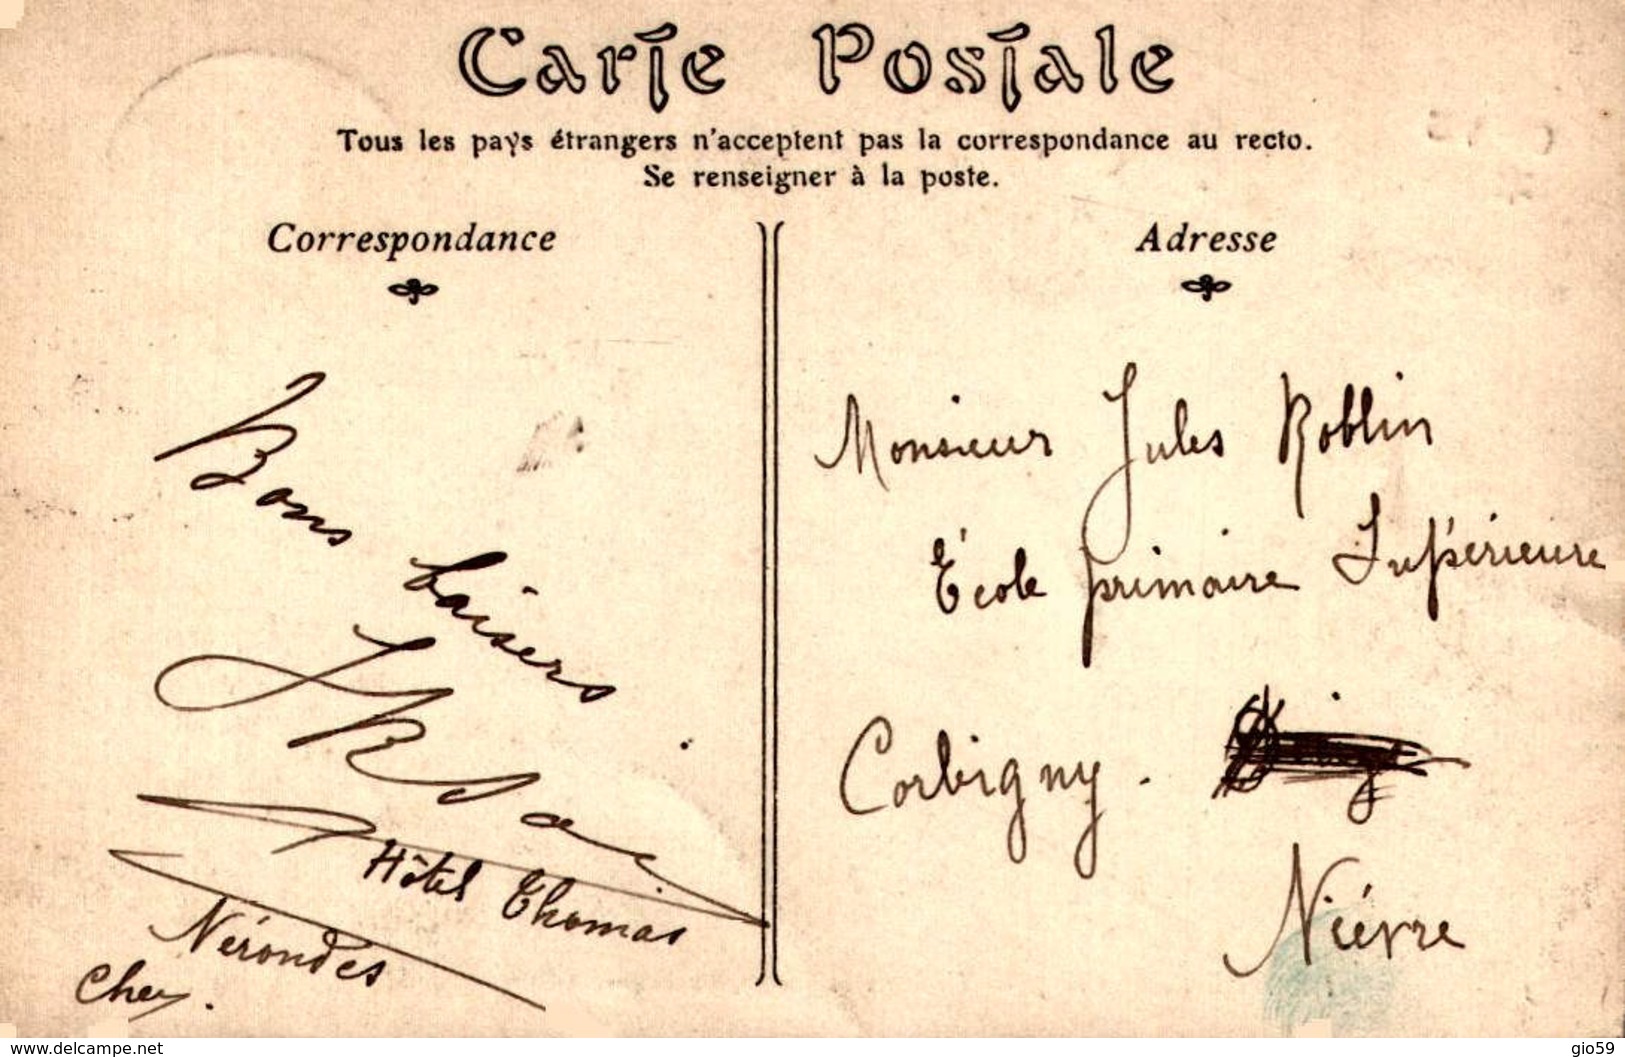 Carte Postale
Tous les pays étrangers n'acceptent pas la correspondance au recto.
Se renseigner à la poste.
Correspondance
Bons baisers
Hôtel Thomas
Nérondes
Cher.
Adresse
Monsieur Jules Roblin
École primaire Supérieure
Corbigny.
Nièvre
www.delcampe.net
gio59